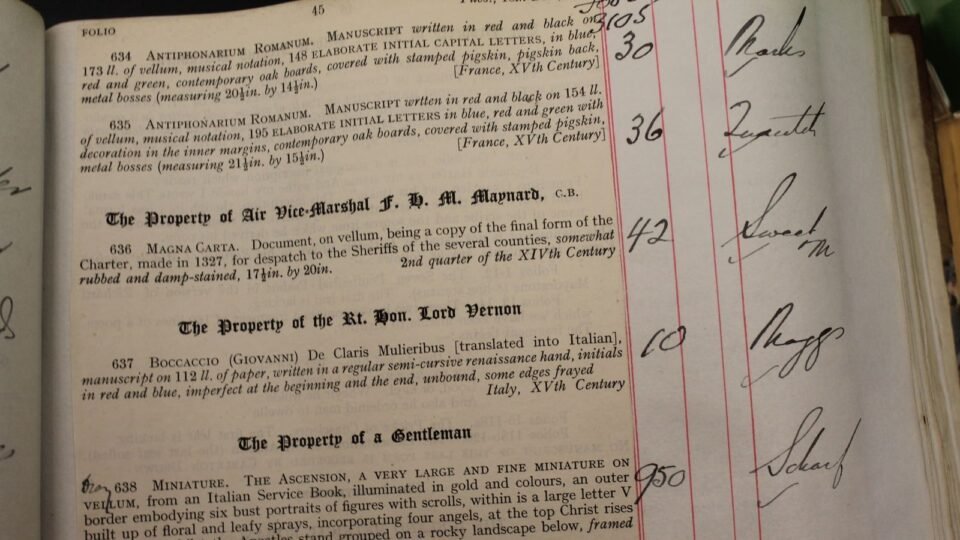 45
FOLIO
3105
634 ANTIPHONARIUM ROMANUM. MANUSCRIPT written in red and black on
173 ll. of vellum, musical notation, 148 ELABORATE INITIAL CAPITAL LETTERS, in blue,
red and green, contemporary oak boards, covered with stamped pigskin, pigskin back,
metal bosses (measuring 20½in. by 14½in.) [France, XVth Century]
30 Marks
635 ANTIPHONARIUM ROMANUM. MANUSCRIPT written in red and black on 154 ll.
of vellum, musical notation, 195 ELABORATE INITIAL LETTERS in blue, red and green with
decoration in the inner margins, contemporary oak boards, covered with stamped pigskin,
metal bosses (measuring 21½in. by 15½in.) [France, XVth Century]
36
The Property of Air Vice-Marshal F. H. M. Maynard, C.B.
636 MAGNA CARTA. Document, on vellum, being a copy of the final form of the
Charter, made in 1327, for despatch to the Sheriffs of the several counties, somewhat
rubbed and damp-stained, 17½in. by 20in. 2nd quarter of the XIVth Century
42 Sweet
M
The Property of the Rt. Hon. Lord Vernon
637 BOCCACCIO (GIOVANNI) De Claris Mulieribus [translated into Italian],
manuscript on 112 ll. of paper, written in a regular semi-cursive renaissance hand, initials
in red and blue, imperfect at the beginning and the end, unbound, some edges frayed
Italy, XVth Century
10 Maggs
The Property of a Gentleman
638 MINIATURE. THE ASCENSION, A VERY LARGE AND FINE MINIATURE ON
VELLUM, from an Italian Service Book, illuminated in gold and colours, an outer
border embodying six bust portraits of figures with scrolls, within is a large letter V
built up of floral and leafy sprays, incorporating four angels, at the top Christ rises
stand grouped on a rocky landscape below, framed
950 Scharf